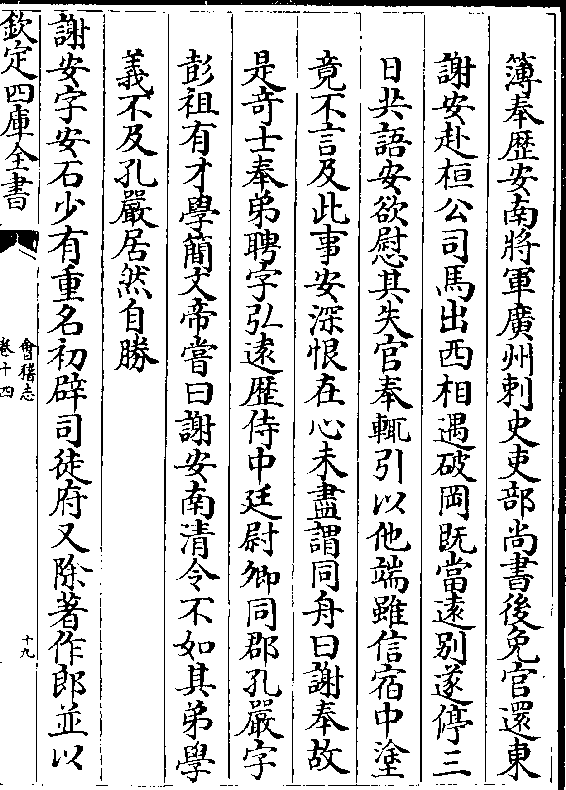 簿奉歴安南將軍廣州刺史吏部尚書後免官還東
謝安赴桓公司馬出西相遇破岡既當遠別遂停三
日共語安欲慰其失官奉輒引以他端雖信宿中塗
竟不言及此事安深恨在心未盡謂同舟曰謝奉故
是奇士奉弟聘字弘逺歴侍中廷尉卿同郡孔嚴字
彭祖有才學簡文帝嘗曰謝安南清令不如其弟學
義不及孔嚴居然自勝
謝安字安石少有重名初辟司徒府又除著作郎並以
欽定四庫全書
會稽志
卷十四
十九